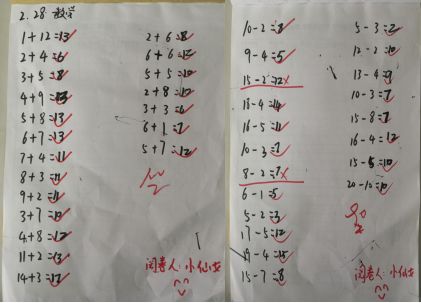 2.28 数学
1+12=13
2+4=6
3+5=8
4+9=13
5+8=13
6+7=13
7+4=11
8+3=11
9+2=11
3+7=10
4+8=12
11+2=13
14+3=17
2+6=8
6+6=12
5+5=10
2+8=10
3+3=6
6+1=7
5+7=12
阅卷人:小仙女
10-2=8
9-4=5
15-2=12
18-4=14
16-5=11
10-3=7
8-2=7
6-1=5
5-2=3
17-5=12
19-4=15
15-7=8
5-3=2
12-2=10
13-4=9
10-3=7
15-8=7
16-4=12
15-5=10
20-10=10
90
阅卷人:小仙女